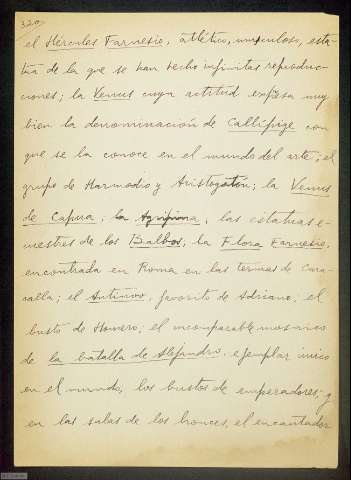 320
el Hércules Farnesio, atlético, musculoso, esta-
tua de la que se han hecho infinitas reproduc-
ciones; la Venus cuya actitud expresa muy
bien la denominación de Callipige con
que se la conoce en el mundo del arte; el
grupo de Harmodio y Aristogitón; la Venus
de Capua; la Agripina, las estatuas e-
cuestres de los Balbos, la Flora Farnesio,
encontrada en Roma en las termas de Cara-
calla; el Antinoo, favorito de Adriano; el
busto de Homero; el incomparable mosaico
de la batalla de Alejandro, ejemplar único
en el mundo, los bustos de emperadores; y
en las salas de los bronces, el encantador